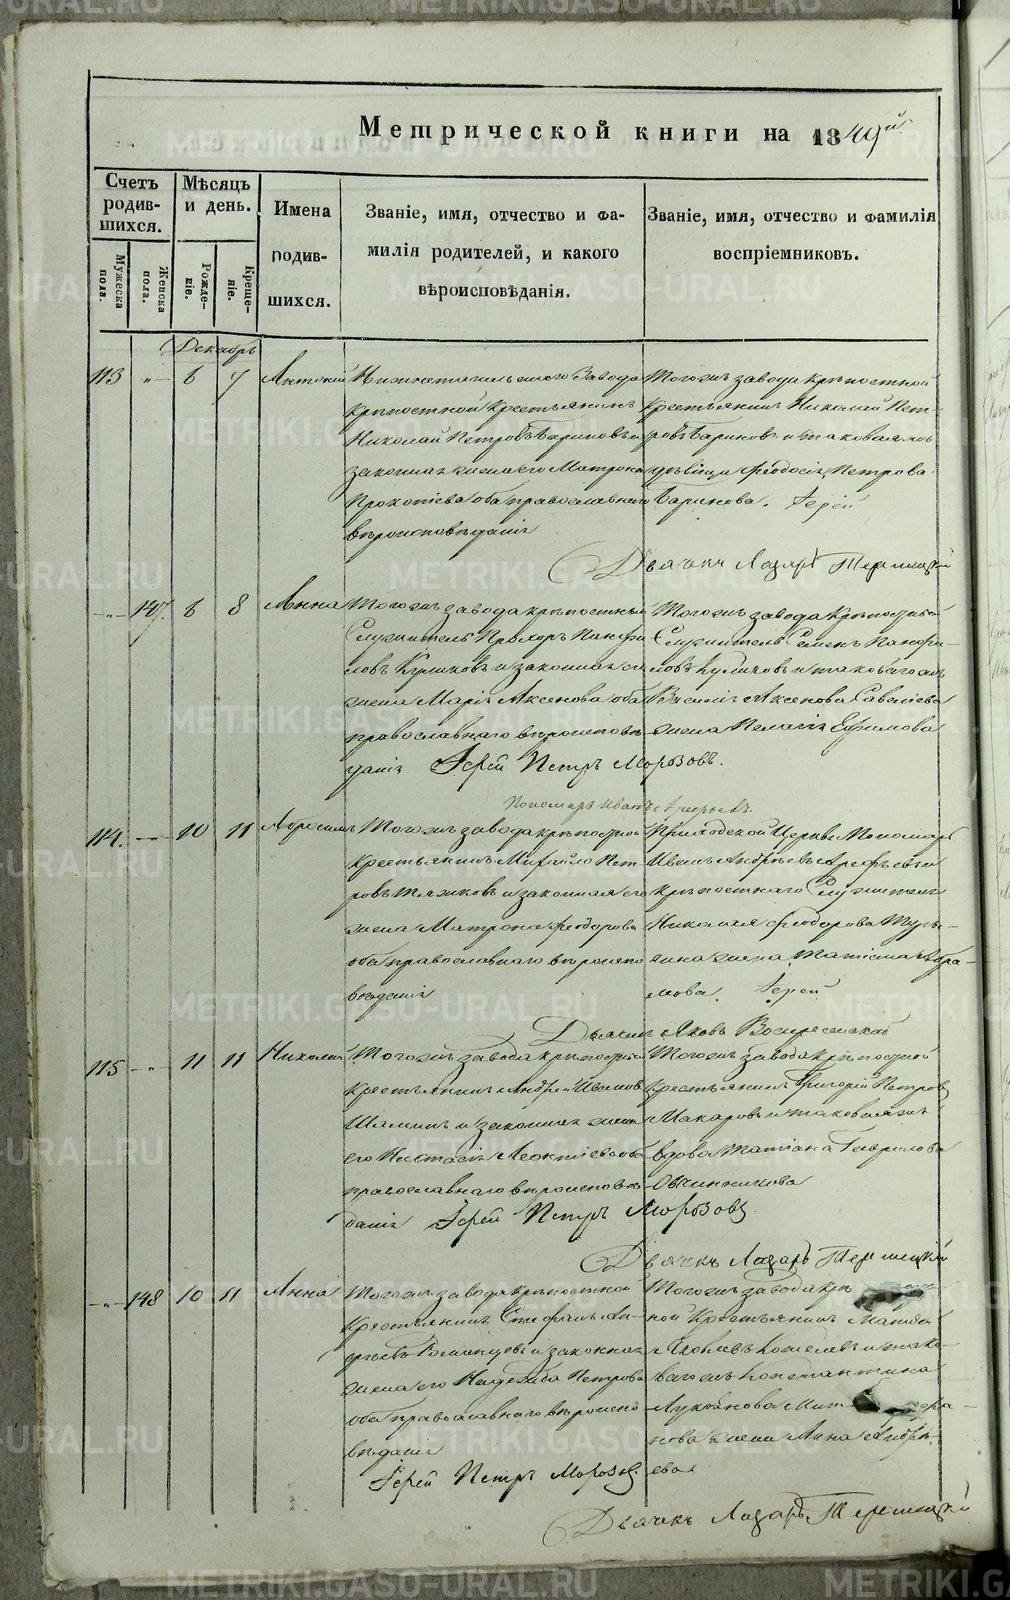 Метрической книги на 1849й.
Счетъ родив-шихся.
Мужеска пола.
Женска пола.
Мѣсяцъ и день.
Рожде-ніе.
Креще-ніе.
Имена родив-шихся.
Званіе, имя, отчество и фа-
милія родителей, и какого
вѣроисповѣданія.
Званіе, имя, отчество и фамилія
воспріемниковъ.
Декабрь
113 " 6 7 Антоній
Нижнетагильскаго Завода
крѣпостной Крестьянинъ
Николай Петровъ Бариновъ и
законная жена его Матрона
Прокопіева оба православнаго
вѣроисповѣданія
Тогожъ завода крѣпостной
Крестьянинъ Николай Пет-
ровъ Бариновъ и таковаяжъ
дѣвица Феодосія Петрова
Баринова. Іерей
Дьячекъ Лазарь
" 147. 6 8 Анна
Тогожъ завода крѣпостный
Служитель Прохоръ Панфи
ловъ и законная его
жена Марія Аксенова оба
православнаго вѣроисповѣ
данія Іерей Петръ Морозовъ.
Тогожъ завода крѣпостный
Служитель Семенъ Панфи-
ловъ Куликовъ и таковагожъ
Василія Аксенова Савельева
жена Пелагія Ефимова
Пономарь Иванъ Арефьевъ.
114. " 10 11 Амвросій
Тогожъ завода крѣпостной
Крестьянинъ Михайло Пет
ровъ и законная его
жена Матрона Феодорова
оба православнаго вѣроиспо
вѣданія
Приходской Церкви Пономарь
Иванъ Андреевъ Арефьевъ и
крѣпостнаго Служителя
Николая Феодорова
жена Татіана Абра-
мова. Іерей
Дьяконъ Яковъ Воскресенской
115 " 11 11 Николай
Тогожъ завода крѣпостной
Крестьянинъ Андрей Ивановъ
Шаминъ и законная жена
его Настасія Леонтіева оба
православнаго вѣроисповѣ
данія Іерей Петръ Морозовъ
Тогожъ завода крѣпостной
крестьянинъ Григорій Петровъ
Макаровъ и таковаяжъ
вдова Татіана Гаврилова
Овчинникова
Дьячекъ Лазарь
" 148 10 11 Анна
Тогожъ завода крѣпостной
Крестьянинъ Стефанъ Ан-
и законная
жена его Надежда Петрова
оба православнаго вѣроиспо
вѣданія
Іерей Петръ Морозовъ
Тогожъ завода крѣ
ной Крестьянинъ Матвей
Яковлевъ Кошелевъ и тако-
вагожъ Константина
Лукоянова
нова жена Анна Андрѣ-
ева
Дьячекъ Лазарь
METRIKI.GASO-URAL.RU